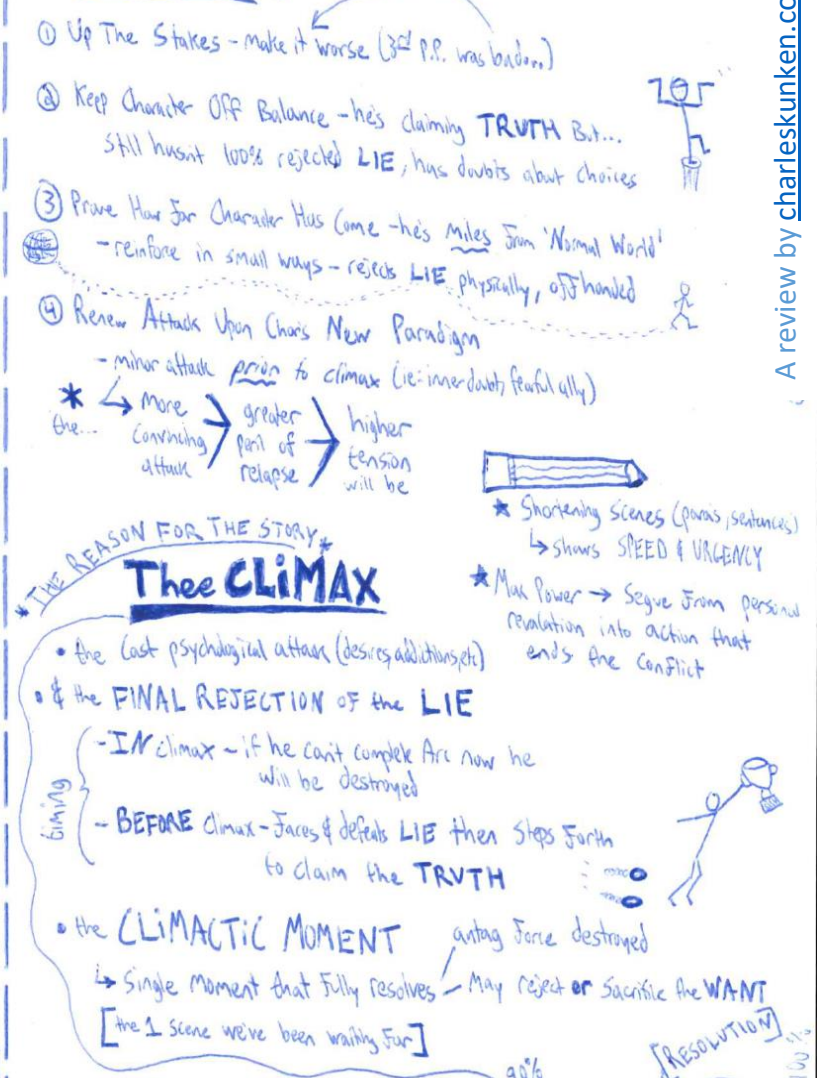 ① Up The Stakes - make it worse (3rd P.P. was bad...)
② Keep Character Off Balance - he's claiming TRUTH But...
Still hasn't 100% rejected LIE, has doubts about choices
③ Prove How Far Character Has Come - he's Miles From 'Normal World'
- reinforce in small ways - rejects LIE physically, off handed
④ Renew Attack Upon Char's New Paradigm
- minor attack prior to climax (ie: inner doubt, fearful ally)
* the...
↳ More convincing attack
greater peril of relapse
higher tension will be
★ Shortening Scenes (para's, sentances)
↳ Shows SPEED & URGENCY
★ Max Power → Segue From personal
revalation into action that
ends the conflict
* THE REASON FOR THE STORY *
Thee CLiMAX
• the Last psychological attack (desires, addictions, etc)
• & the FINAL REJECTION OF the LIE
timing
- IN climax - if he can't complete Arc now he
will be destroyed
- BEFORE Climax - Faces & defeats LIE then Steps Forth
to claim the TRUTH
• the CLiMACTiC MOMENT
antag Force destroyed
↳ Single Moment that Fully resolves - May reject or Sacrifice the WANT
[the 1 Scene we've been waiting For]
90%
[RESOLUTION]
A review by charleskunken.co